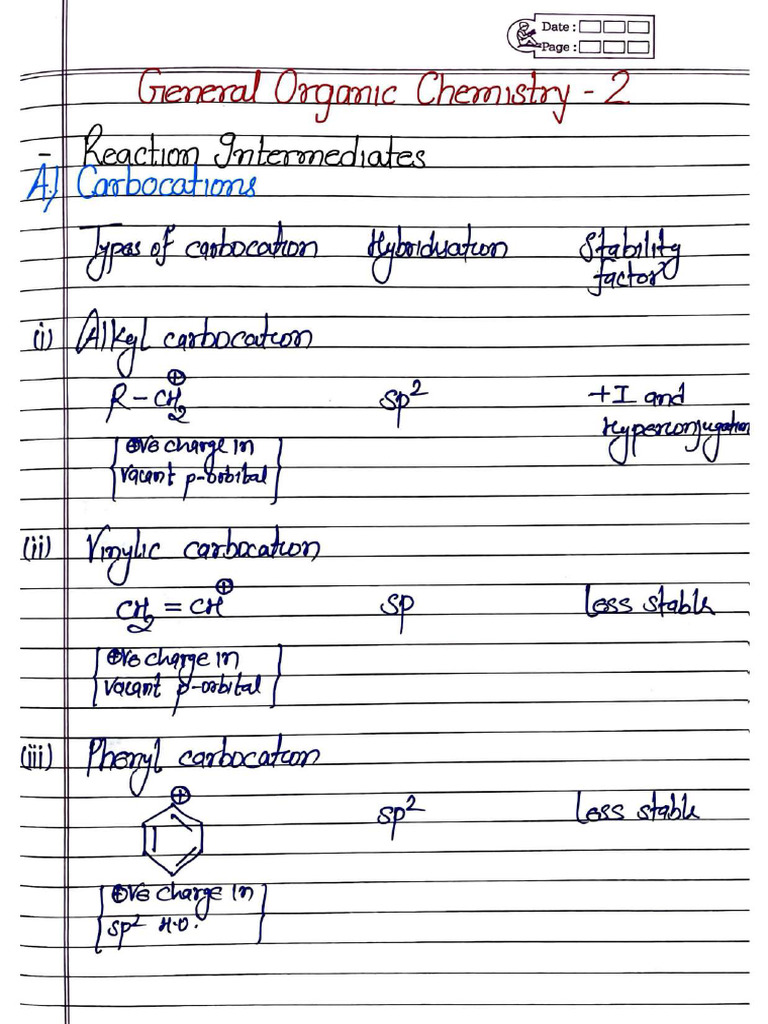 Date :
Page :
General Organic Chemistry - 2
- Reaction Intermediates
A.) Carbocations
Types of carbocation Hybridisation Stability
factor
(i) Alkyl carbocation
R - CH2 ⊕ sp² +I and
Hyperconjugation
⊕ve charge in
vacant p-orbital
(ii) Vinylic carbocation
CH2 = CH ⊕ sp less stable
⊕ve charge in
vacant p-orbital
(iii) Phenyl carbocation
⊕ sp² less stable
⊕ve charge in
sp² H.O.